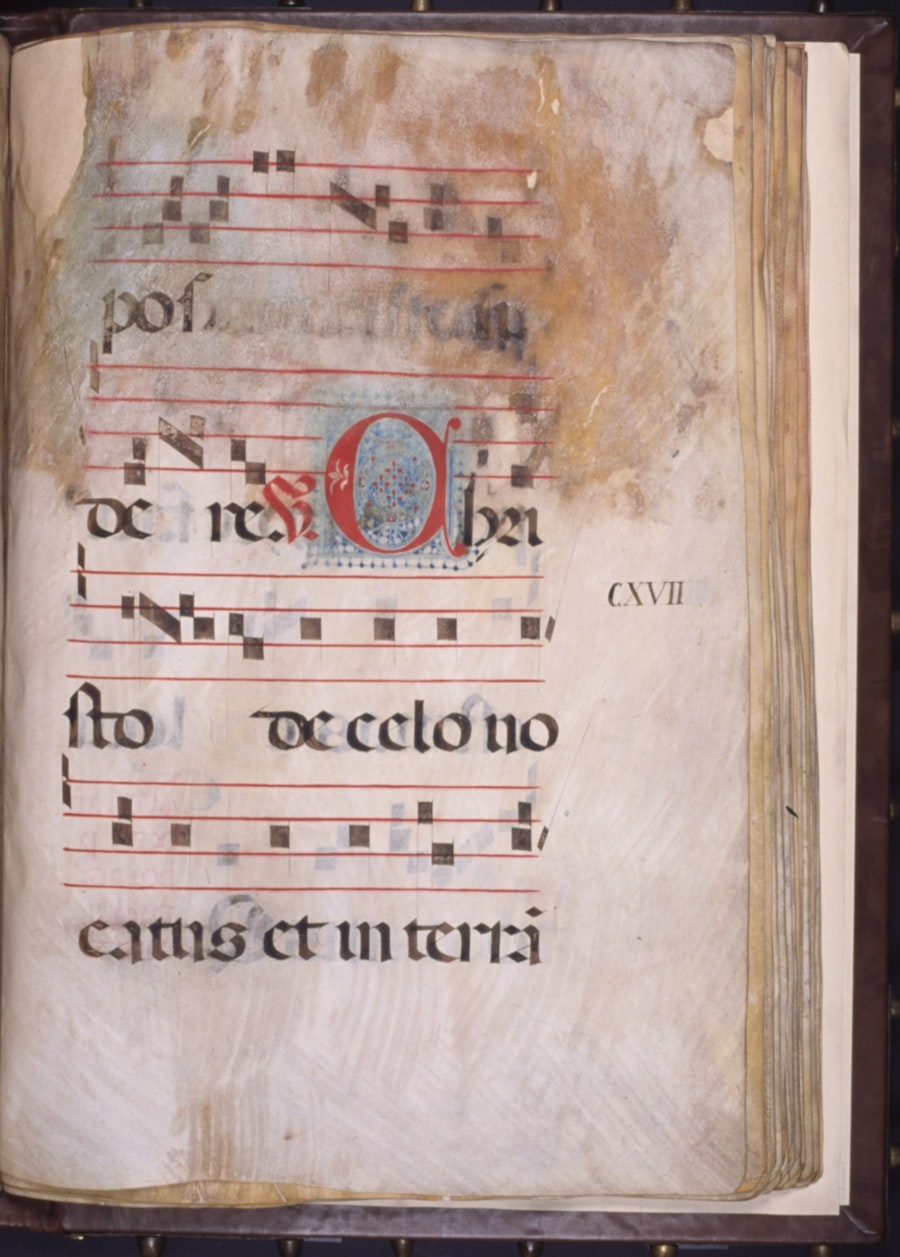 pos
de re. ℟ A hri
CXVII
sto de celo uo
catus et in terrā